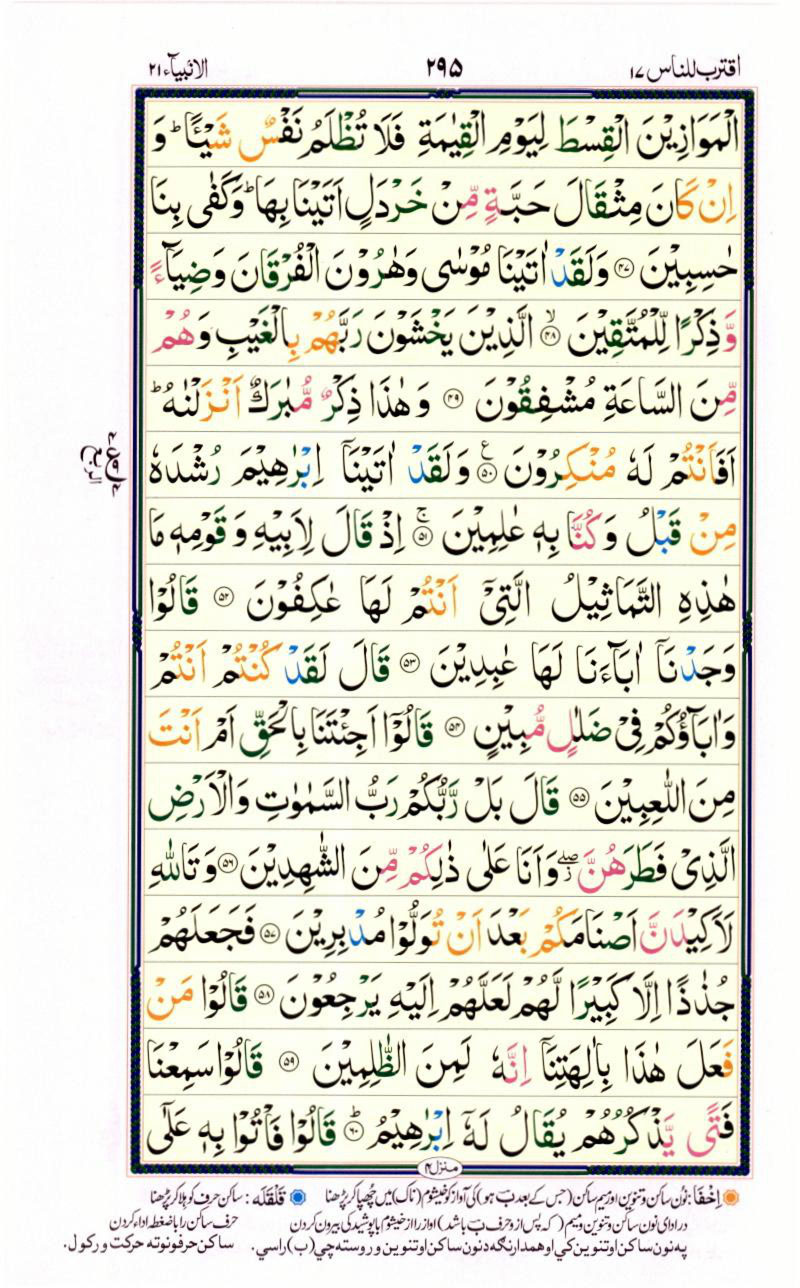 اقترب للناس ۱۷ ۲۹۵ الانبیآء ۲۱
الْمَوَازِيْنَ الْقِسْطَ لِيَوْمِ الْقِيٰمَةِ فَلَا تُظْلَمُ نَفْسٌ شَيْـًٔا ؕ وَ
اِنْ كَانَ مِثْقَالَ حَبَّةٍ مِّنْ خَرْدَلٍ اَتَيْنَا بِهَا ؕ وَكَفٰى بِنَا
حٰسِبِيْنَ ۴۷ وَلَقَدْ اٰتَيْنَا مُوْسٰى وَهٰرُوْنَ الْفُرْقَانَ وَضِيَآءً
وَّذِكْرًا لِّلْمُتَّقِيْنَ ۙ ۴۸ الَّذِيْنَ يَخْشَوْنَ رَبَّهُمْ بِالْغَيْبِ وَهُمْ
مِّنَ السَّاعَةِ مُشْفِقُوْنَ ۴۹ وَهٰذَا ذِكْرٌ مُّبٰرَكٌ اَنْزَلْنٰهُ ؕ
اَفَاَنْتُمْ لَهٗ مُنْكِرُوْنَ ع ۵۰ وَلَقَدْ اٰتَيْنَآ اِبْرٰهِيْمَ رُشْدَهٗ
مِنْ قَبْلُ وَكُنَّا بِهٖ عٰلِمِيْنَ ۚ ۵۱ اِذْ قَالَ لِاَبِيْهِ وَقَوْمِهٖ مَا
هٰذِهِ التَّمَاثِيْلُ الَّتِيْٓ اَنْتُمْ لَهَا عٰكِفُوْنَ ۵۲ قَالُوْا
وَجَدْنَآ اٰبَآءَنَا لَهَا عٰبِدِيْنَ ۵۳ قَالَ لَقَدْ كُنْتُمْ اَنْتُمْ
وَاٰبَآؤُكُمْ فِيْ ضَلٰلٍ مُّبِيْنٍ ۵۴ قَالُوْٓا اَجِئْتَنَا بِالْحَقِّ اَمْ اَنْتَ
مِنَ اللّٰعِبِيْنَ ۵۵ قَالَ بَلْ رَّبُّكُمْ رَبُّ السَّمٰوٰتِ وَالْاَرْضِ
الَّذِيْ فَطَرَهُنَّ ۖ ز وَاَنَا عَلٰى ذٰلِكُمْ مِّنَ الشّٰهِدِيْنَ ۵۶ وَتَاللّٰهِ
لَاَكِيْدَنَّ اَصْنَامَكُمْ بَعْدَ اَنْ تُوَلُّوْا مُدْبِرِيْنَ ۵۷ فَجَعَلَهُمْ
جُذٰذًا اِلَّا كَبِيْرًا لَّهُمْ لَعَلَّهُمْ اِلَيْهِ يَرْجِعُوْنَ ۵۸ قَالُوْا مَنْ
فَعَلَ هٰذَا بِاٰلِهَتِنَآ اِنَّهٗ لَمِنَ الظّٰلِمِيْنَ ۵۹ قَالُوْا سَمِعْنَا
فَتًى يَّذْكُرُهُمْ يُقَالُ لَهٗٓ اِبْرٰهِيْمُ ؕ ۶۰ قَالُوْا فَاْتُوْا بِهٖ عَلٰٓى
الربع
منزل ۴
اِخْفَا: نُون ساکن و تنوین اور میم ساکن (جس کے بعد بَ ہو) کی آواز کو خیشوم (ناک) میں چُھپا کر پڑھنا قَلْقَلَه: ساکن حرف کو ہلا کر پڑھنا
در ادای نون ساکن و تنوین و میم (که پس از و حرف بَ باشد) آواز را از خیشوم با پوشیدگی بیرون کردن حرف ساکن را باضغطه ادا کردن
په نون ساکن او تنوین کي او همدارنګه د نون ساکن او تنوین وروسته چي (ب) راسي. ساکن حرفونو ته حرکت ورکول.